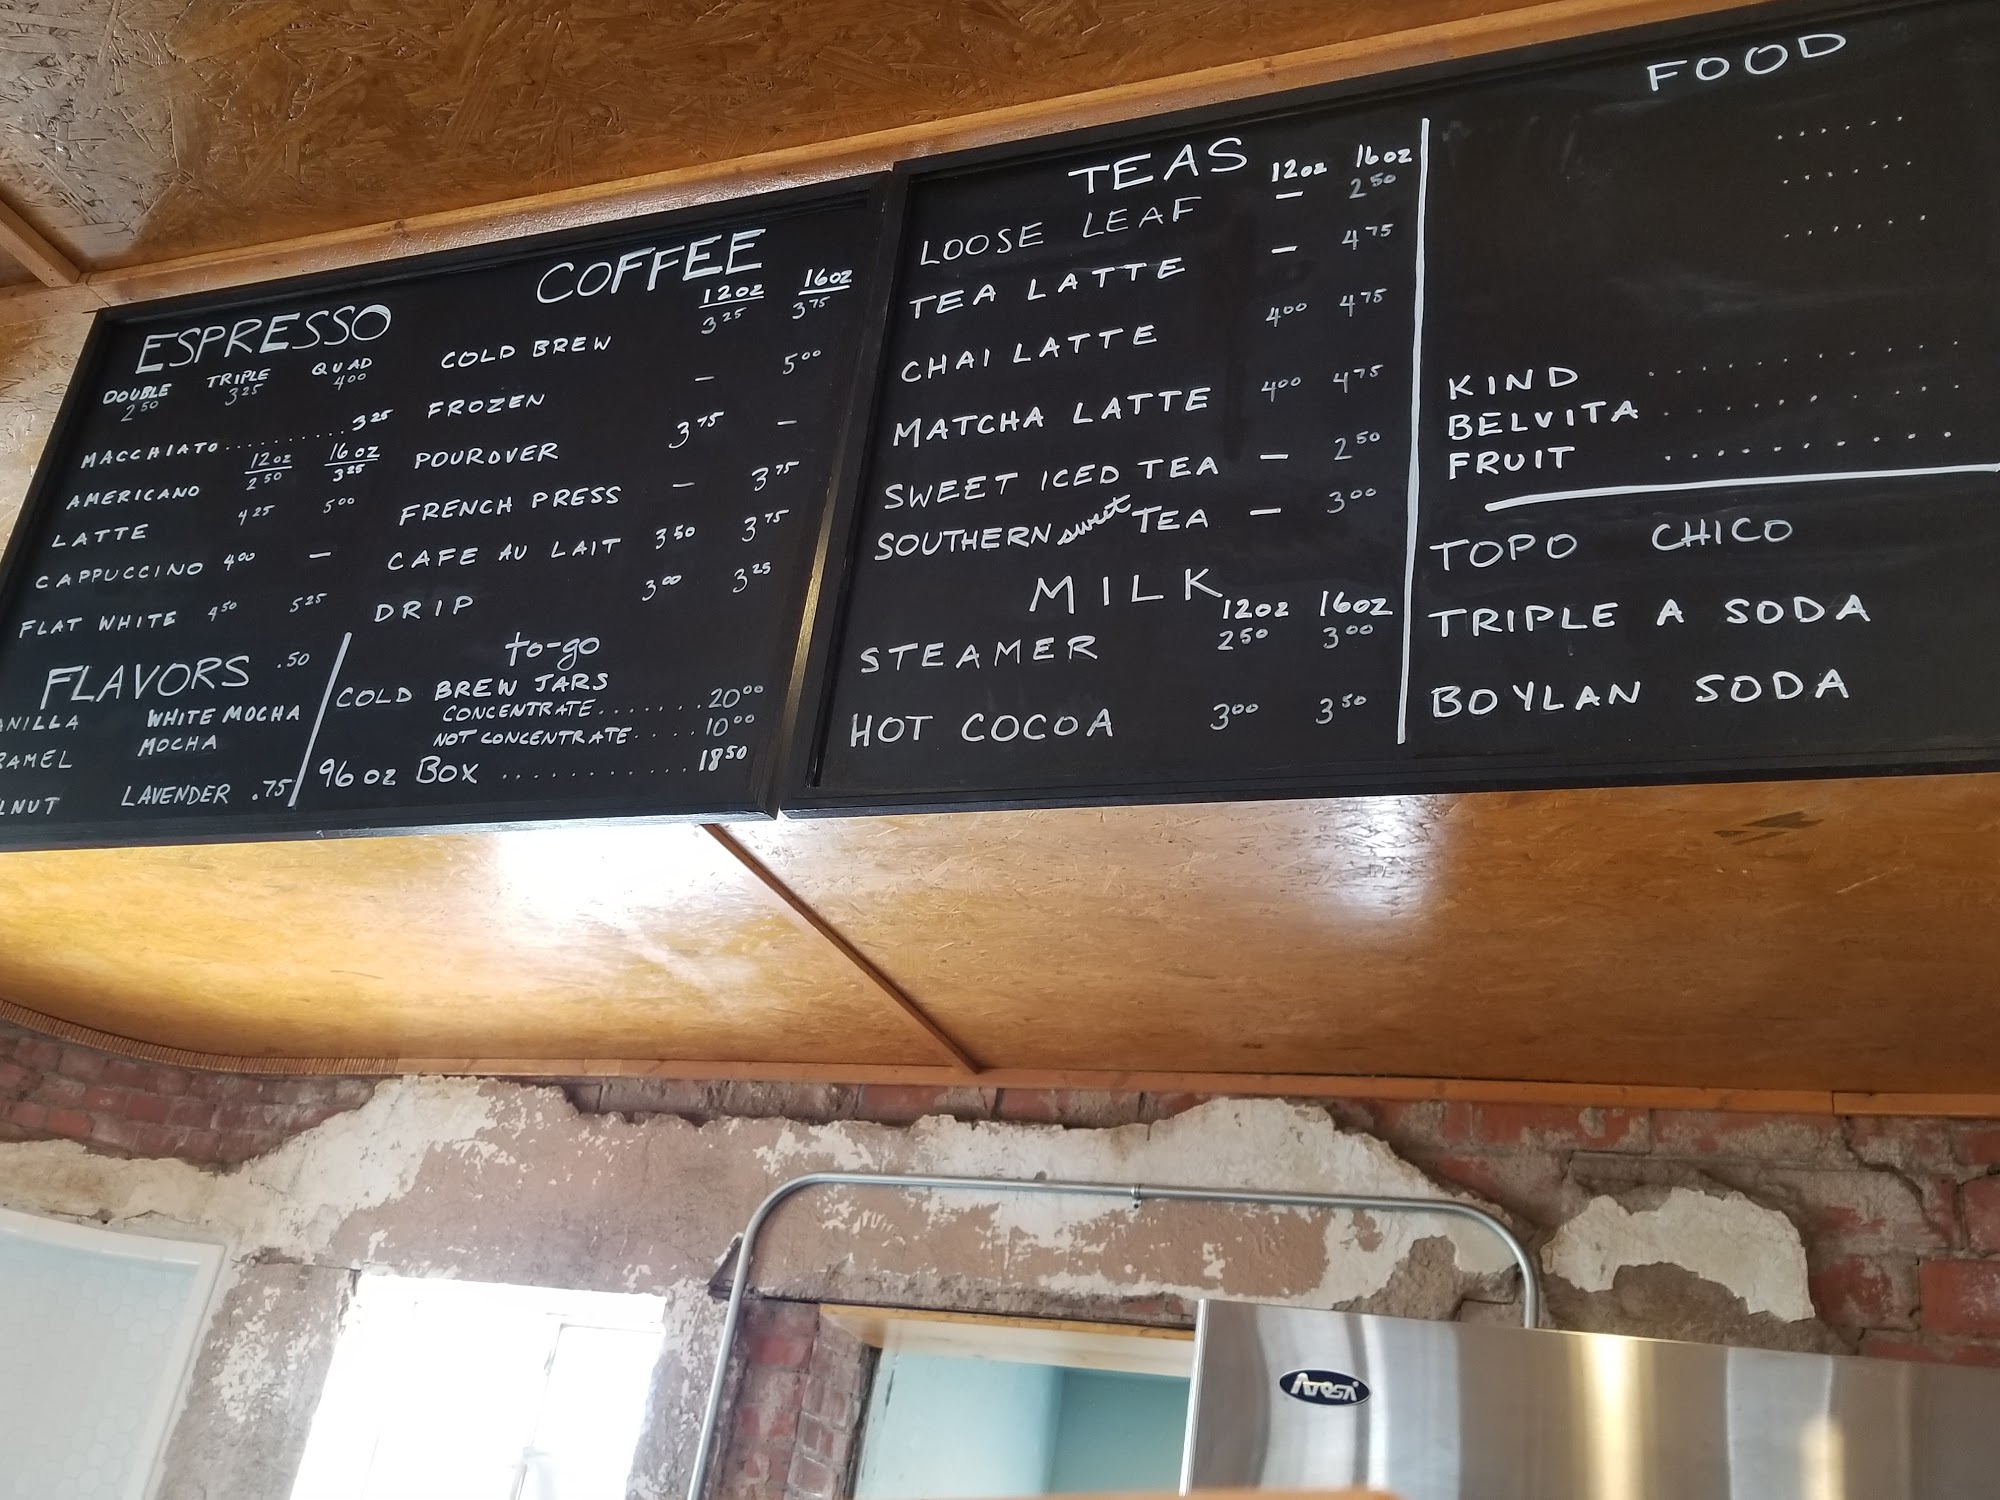 ESPRESSO
DOUBLE TRIPLE QUAD
2.50 3.25 4.00
MACCHIATO.......... 3.25
12oz 16oz
AMERICANO 2.50 3.25
LATTE 4.25 5.00
CAPPUCCINO 4.00 —
FLAT WHITE 4.50 5.25
FLAVORS .50
ANILLA WHITE MOCHA
RAMEL MOCHA
LNUT LAVENDER .75
COFFEE
12oz 16oz
COLD BREW 3.25 3.75
FROZEN — 5.00
POUROVER 3.75 —
FRENCH PRESS — 3.75
CAFE AU LAIT 3.50 3.75
DRIP 3.00 3.25
to-go
COLD BREW JARS
CONCENTRATE....... 20.00
NOT CONCENTRATE..... 10.00
96 oz BOX ........... 18.50
TEAS 12oz 16oz
LOOSE LEAF — 2.50
TEA LATTE — 4.75
CHAI LATTE 4.00 4.75
MATCHA LATTE 4.00 4.75
SWEET ICED TEA — 2.50
SOUTHERN sweet TEA — 3.00
MILK 12oz 16oz
STEAMER 2.50 3.00
HOT COCOA 3.00 3.50
FOOD
......
......
......
KIND ..........
BELVITA ..........
FRUIT ..........
TOPO CHICO
TRIPLE A SODA
BOYLAN SODA
Atosa